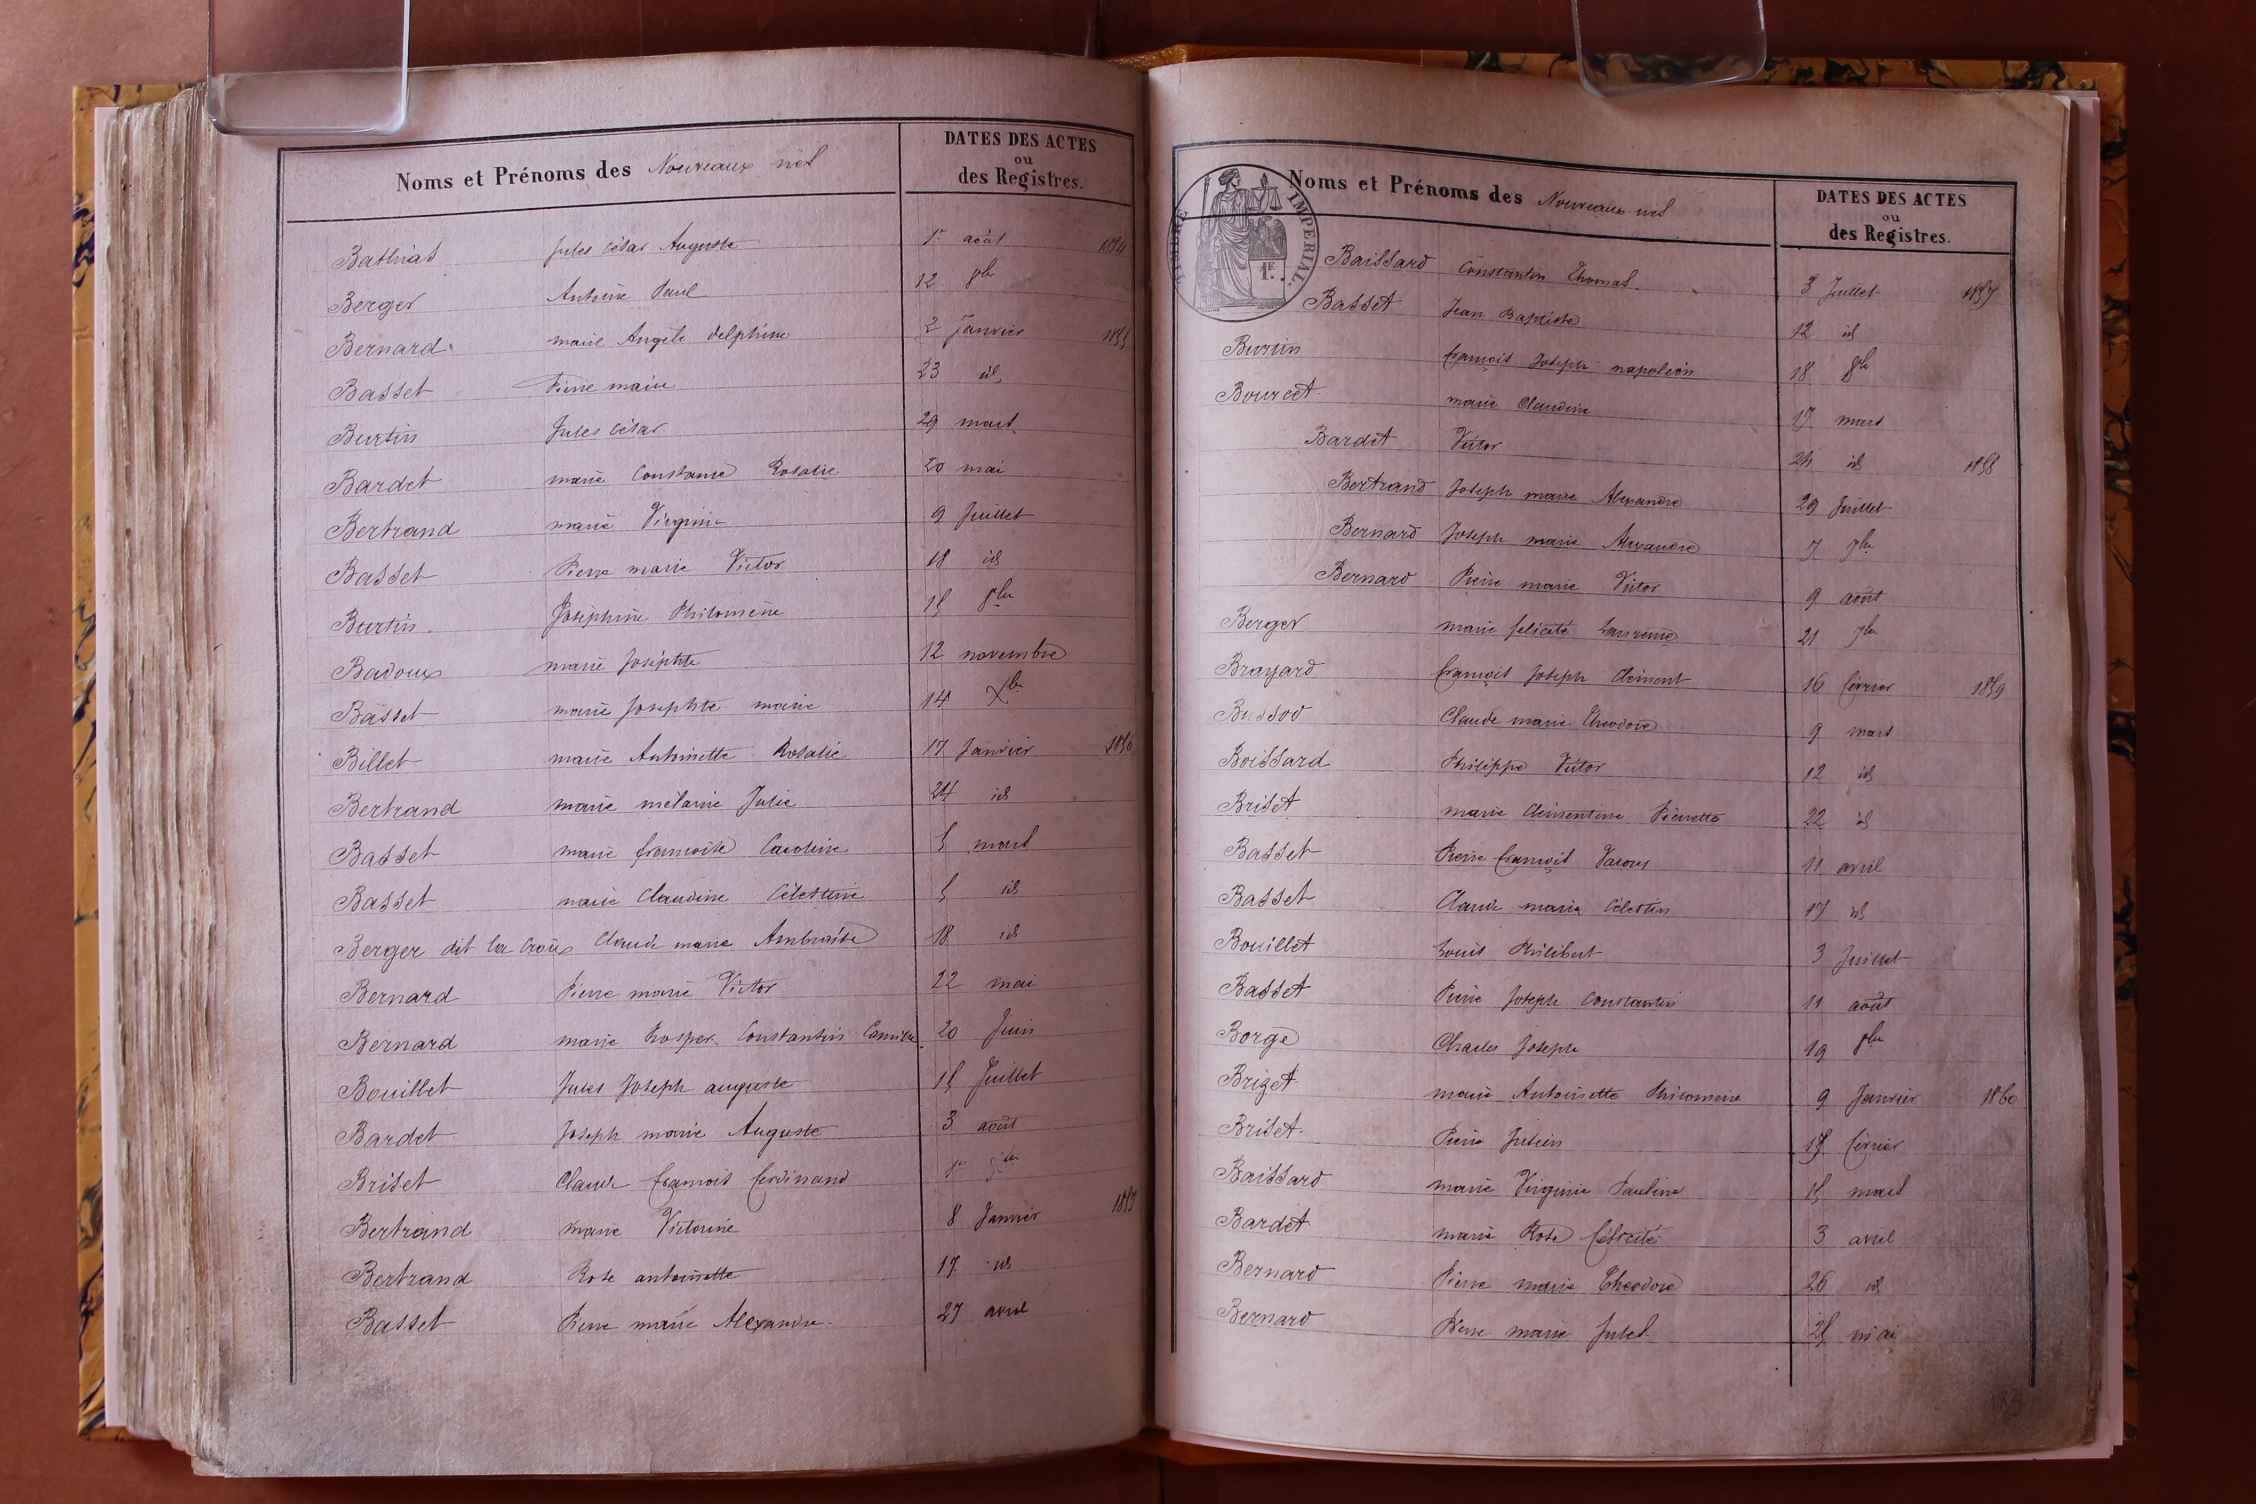 Noms et Prénoms des Nouveaux nés
DATES DES ACTES
ou
des Registres.
Bathias Jules César Auguste 1er août 1854
Berger Antoine Paul 12 8bre
Bernard marie Angèle delphine 2 Janvier 1855
Basset Pierre marie 23 id
Burtin Jules César 29 mars
Bardet marie Constance Rosalie 20 mai
Bertrand marie Virginie 9 Juillet
Basset Pierre marie Victor 18 id
Burtin Joséphine Philomène 15 8bre
Badoux marie Josephte 12 novembre
Basset marie Josephte marie 14 Xbre
Billet marie Antoinette Rosalie 17 Janvier 1856
Bertrand marie mélanie Julie 24 id
Basset marie françoise Caroline 5 mars
Basset marie Claudine Célestine 5 id
Berger dit la Croix Claude marie Ambroise 18 id
Bernard Pierre marie Victor 22 mai
Bernard marie Prosper Constantin Camille 20 Juin
Bouillet Jules Joseph auguste 15 Juillet
Bardet Joseph marie Auguste 3 août
Briset Claude françois ferdinand 1er
Bertrand marie Victorine 8 Janvier 1857
Bertrand Rose antoinette 17 id
Basset Pierre marie Alexandre 27 avril
TIMBRE IMPERIAL
1F.
Noms et Prénoms des Nouveaux nés
DATES DES ACTES
ou
des Registres.
Baissard Constantin Thomas 3 Juillet 1857
Basset Jean Baptiste 12 id
Burtin françois Joseph napoléon 18 8bre
Bourcet marie Claudine 17 mars
Bardet Victor 24 id 1858
Bertrand Joseph marie Alexandre 29 Juillet
Bernard Joseph marie Alexandre 7 7bre
Bernard Pierre marie Victor 9 août
Berger marie félicité Laurence 21 7bre
Brayard françois Joseph Clément 16 février 1859
Bussod Claude marie Théodore 9 mars
Boissard Philippe Victor 12 id
Briset marie Clémentine Pierrette 22 id
Basset Pierre françois 11 avril
Basset Claude marie Célestin 17 id
Bouillet Louis Philibert 3 Juillet
Basset Pierre Joseph Constantin 11 août
Borge Charles Joseph 19 8bre
Brizet marie Antoinette Philomène 9 Janvier 1860
Briset Pierre Julien février
Baissard marie Virginie Pauline 15 mars
Bardet marie Rose félicité 3 avril
Bernard Pierre marie Théodore 26 id
Bernard Pierre marie Jules 25 mai